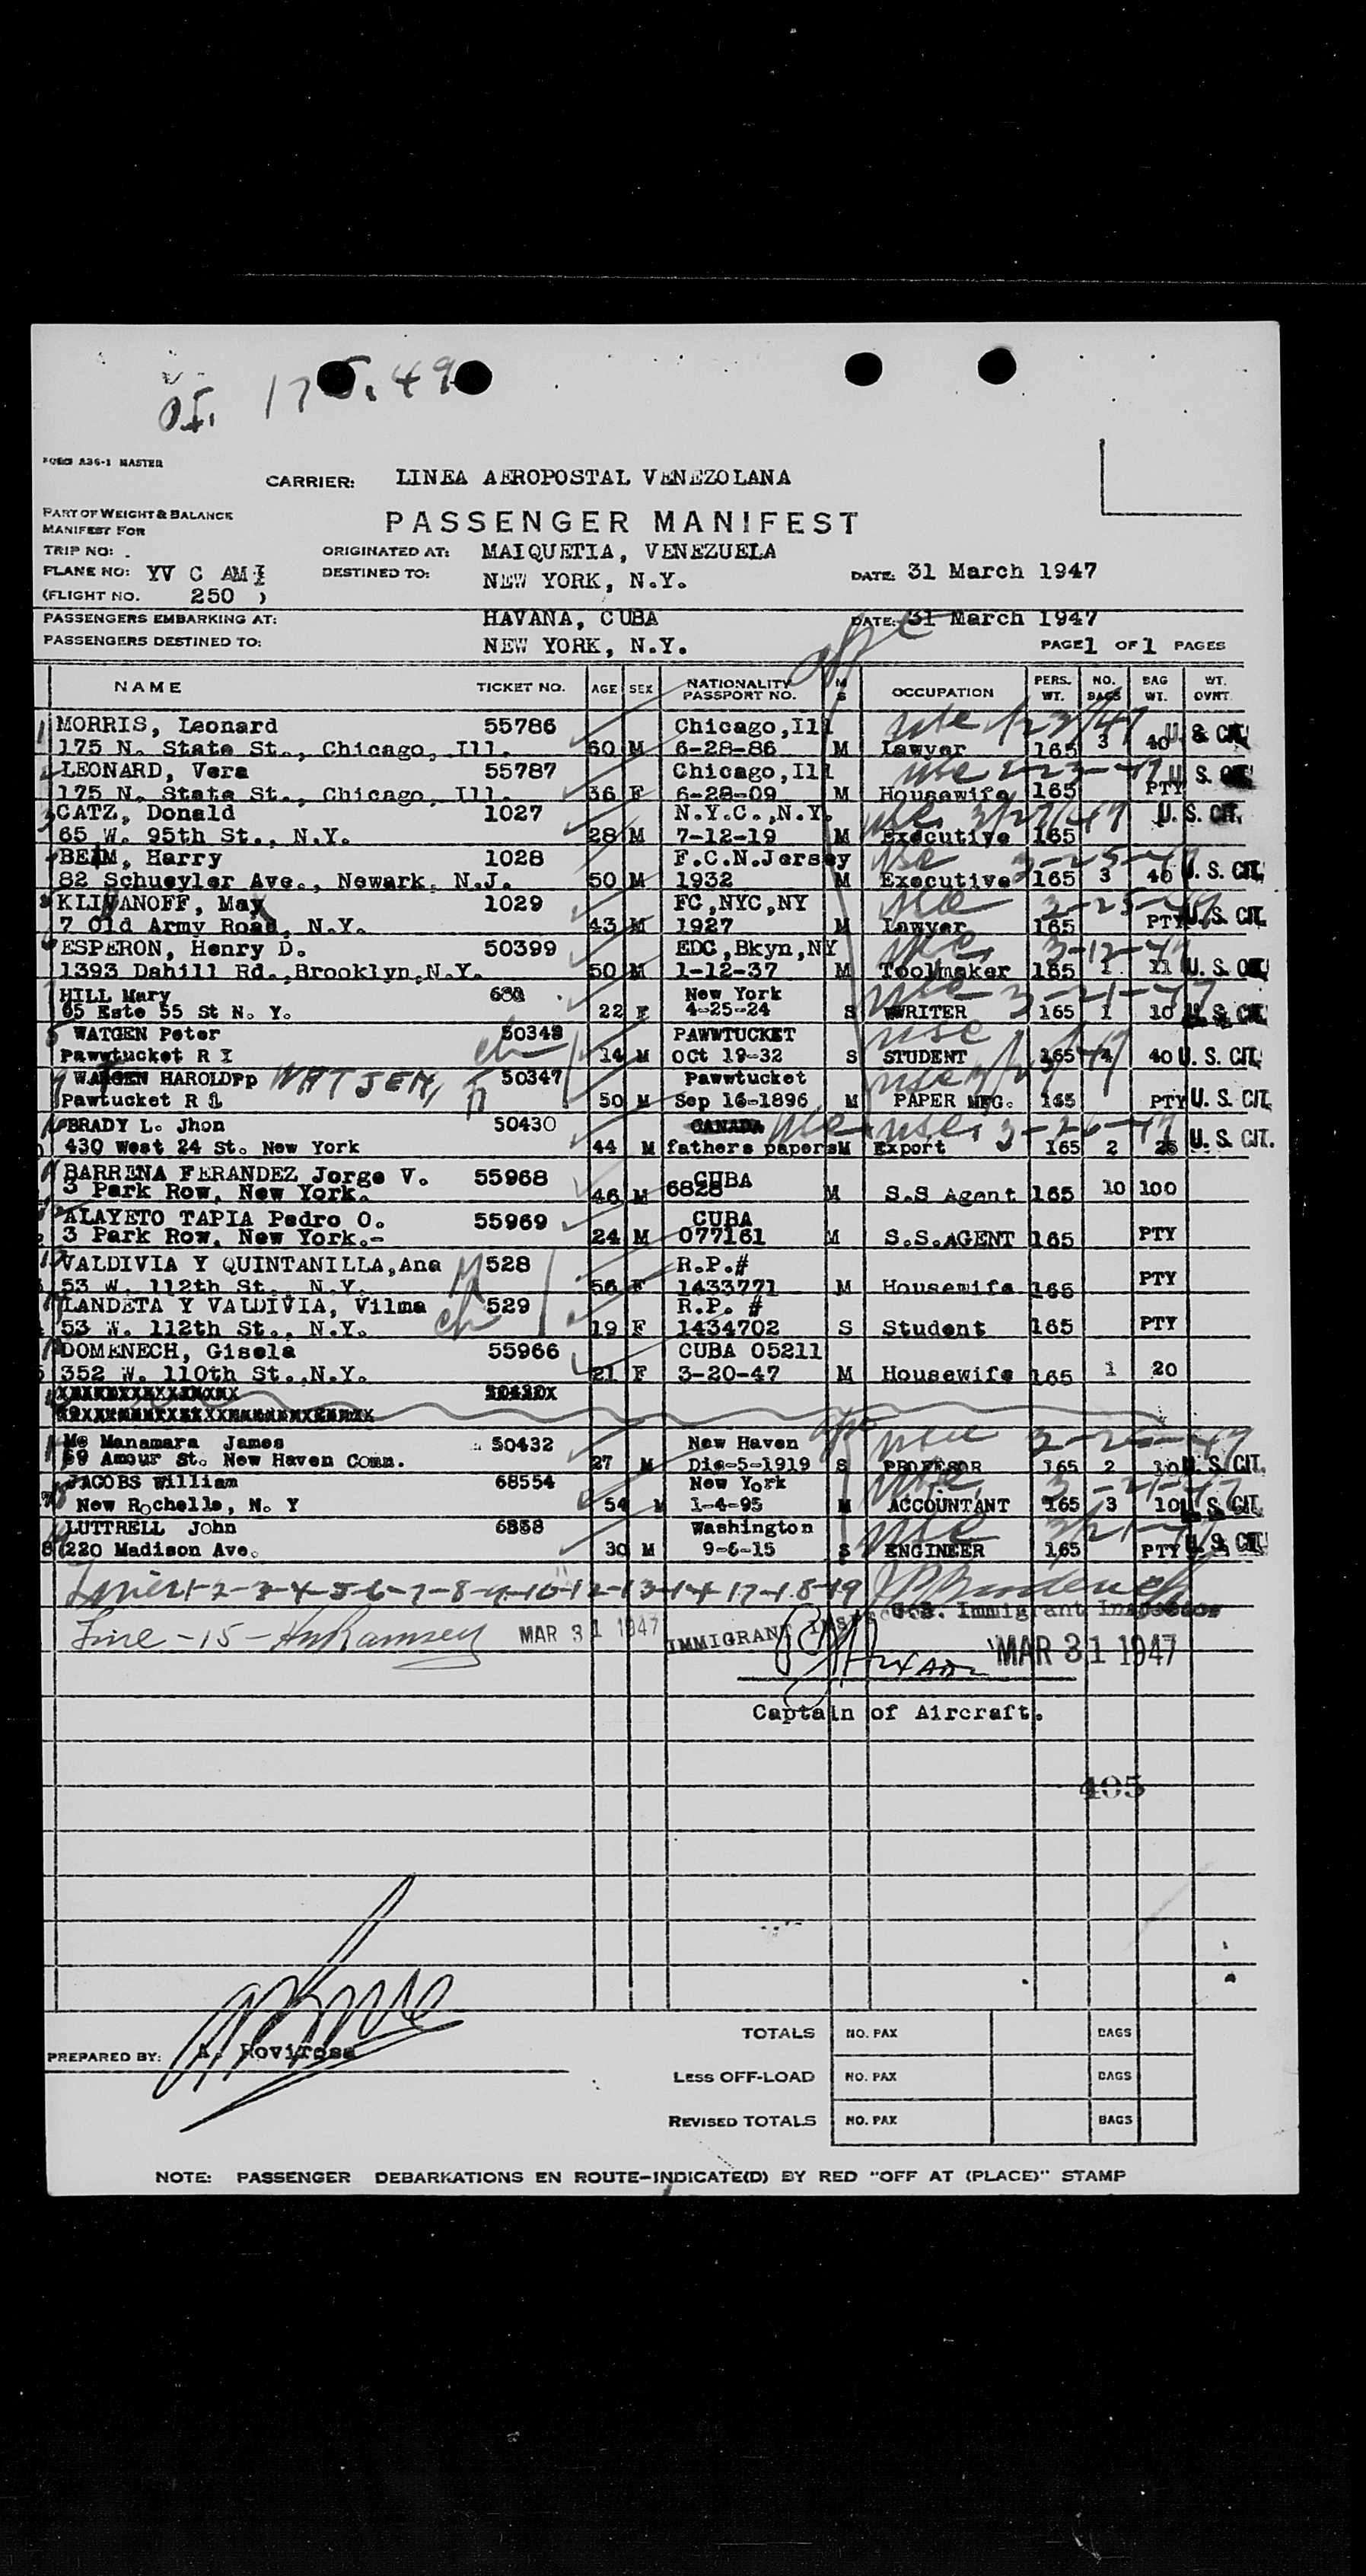 175.49
FORM A36-1 MASTER
CARRIER: LINEA AEROPOSTAL VENEZOLANA
PART OF WEIGHT & BALANCE
MANIFEST FOR
PASSENGER MANIFEST
TRIP NO: .
ORIGINATED AT: MAIQUETIA, VENEZUELA
PLANE NO: YV C AM
DESTINED TO: NEW YORK, N.Y.
DATE: 31 March 1947
(FLIGHT NO. 250 )
PASSENGERS EMBARKING AT: HAVANA, CUBA
DATE: 31 March 1947
PASSENGERS DESTINED TO: NEW YORK, N.Y.
PAGE 1 OF 1 PAGES
NAME TICKET NO. AGE SEX NATIONALITY PASSPORT NO. M S OCCUPATION PERS. WT. NO. BAGS BAG WT. WT. OVRT.
1 MORRIS, Leonard 55786 Chicago,Ill 1/23/47
175 N. State St., Chicago, Ill. 60 M 6-28-86 M Lawyer 165 3 40 U. S. CIT.
LEONARD, Vera 55787 Chicago,Ill
175 N. State St., Chicago, Ill. 36 F 6-28-09 M Housewife 165 PTY U. S. CIT.
3 CATZ, Donald 1027 N.Y.C.,N.Y.
65 W. 95th St., N.Y. 28 M 7-12-19 M Executive 165 U. S. CIT.
BEIM, Harry 1028 F.C.N.Jersey 3-25-47
82 Schueyler Ave., Newark, N.J. 50 M 1932 M Executive 165 3 40 U. S. CIT.
KLIVANOFF, May 1029 FC,NYC,NY
7 Old Army Road, N.Y. 43 M 1927 M Lawyer 165 PTY U. S. CIT.
ESPERON, Henry D. 50399 EDC,Bkyn,NY 3-12-47
1393 Dahill Rd.,Brooklyn,N.Y. 50 M 1-12-37 M Toolmaker 165 1 11 U. S. CIT.
HILL Mary New York 3-21-47
65 Este 55 St N. Y. 22 F 4-25-24 S WRITER 165 1 10 U. S. CIT.
WATGEN Peter 50348 PAWWTUCKET
Pawwtucket R I 14 M Oct 19-32 S STUDENT 165 4 40 U. S. CIT.
WATGEN HAROLD WATJEN 50347 Pawwtucket
Pawtucket R I 50 M Sep 16-1896 M PAPER MFG. 165 PTY U. S. CIT.
BRADY L. Jhon 50430 CANADA 3-26-47
430 West 24 St. New York 44 M fathers papers M Export 165 2 25 U. S. CIT.
BARRENA FERANDEZ Jorge V. 55968 CUBA
3 Park Row, New York. 46 M 6828 M S.S Agent 165 10 100
ALAYETO TAPIA Pedro O. 55969 CUBA
3 Park Row, New York.- 24 M 077161 M S.S.AGENT 165 PTY
VALDIVIA Y QUINTANILLA,Ana 528 R.P.#
53 W. 112th St., N.Y. 56 F 1433771 M Housewife 165 PTY
LANDETA Y VALDIVIA, Vilma 529 R.P. #
53 W. 112th St., N.Y. 19 F 1434702 S Student 165 PTY
DOMENECH, Gisela 55966 CUBA 05211
352 W. 110th St.,N.Y. 21 F 3-20-47 M Housewife 165 1 20
Mc Manamara James 50432 New Haven
69 Amour St. New Haven Conn. 27 M Dic-5-1919 S PROFESOR 165 2 10 U. S. CIT.
JACOBS William 68554 New York
New Rochelle, N. Y 54 M 1-4-95 M ACCOUNTANT 165 3 10 U. S. CIT.
LUTTRELL John 6858 Washington
220 Madison Ave. 30 M 9-6-15 S ENGINEER 165 PTY U. S. CIT.
Lines 1-2-3-4-5-6-7-8-9-10-12-13-14-17-18-19
U.S. Immigrant Inspector
Line -15- Ramsey MAR 31 1947 IMMIGRANT INSPECTOR
MAR 31 1947
Captain of Aircraft.
405
PREPARED BY: A. Rovirosa
TOTALS NO. PAX BAGS
LESS OFF-LOAD NO. PAX BAGS
REVISED TOTALS NO. PAX BAGS
NOTE: PASSENGER DEBARKATIONS EN ROUTE-INDICATE(D) BY RED "OFF AT (PLACE)" STAMP